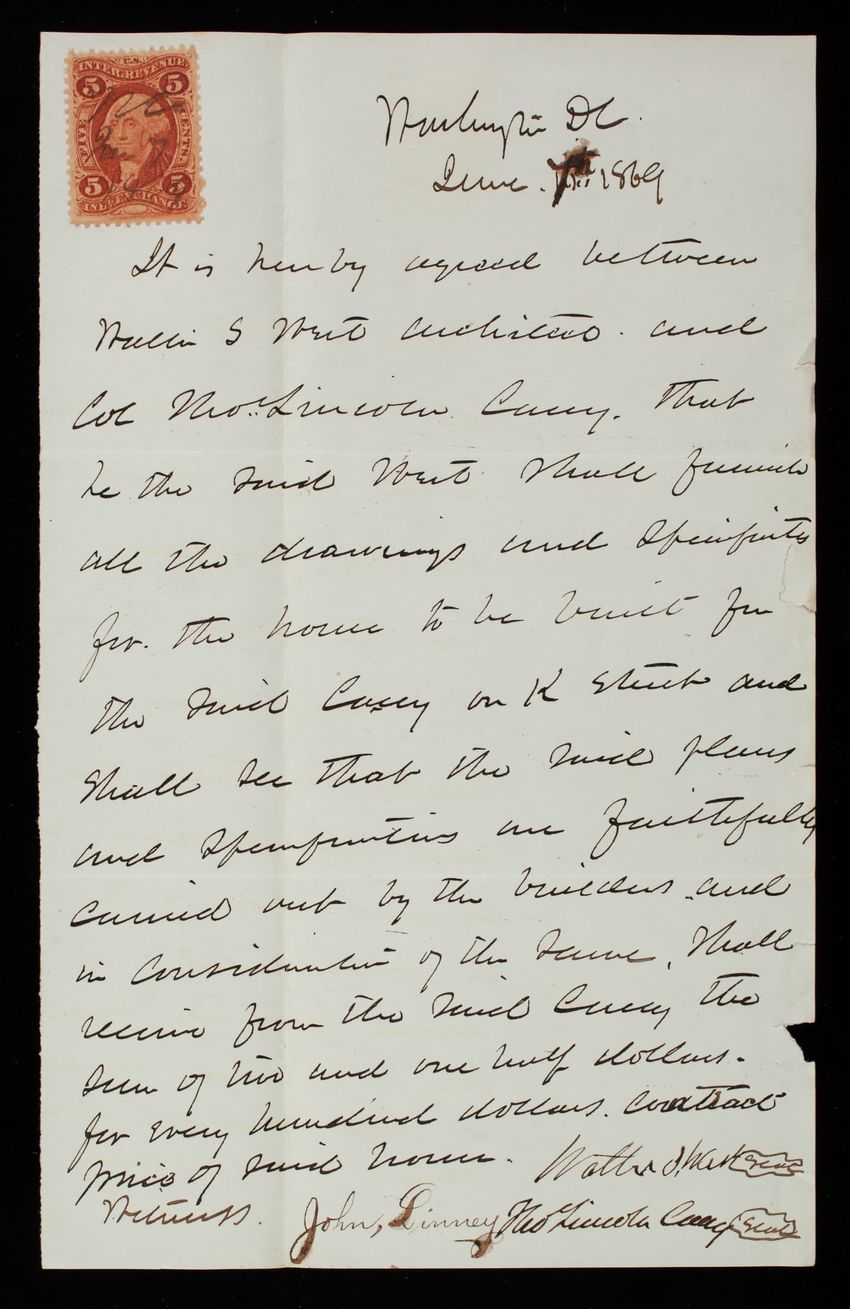 U.S.
INTER. REVENUE
5 5
FIVE CENTS
5 5
IND. EXCHANGE
Washington DC.
June. 1869
It is hereby agreed between
Walter S West architect. and
Col Thos. Lincoln Casey. That
he the said West shall furnish
all the drawings and
for. the house to be built for
the said Casey on K Street and
shall see that the said plans
and specifications are faithfully
carried out by the builders and
in consideration of the same, shall
receive from the said Casey the
sum of two and one half dollars.
for every hundred dollars. contract
price of said house. Walter S. West Seal
Witness. John, Linney Thos Lincoln Casey Seal